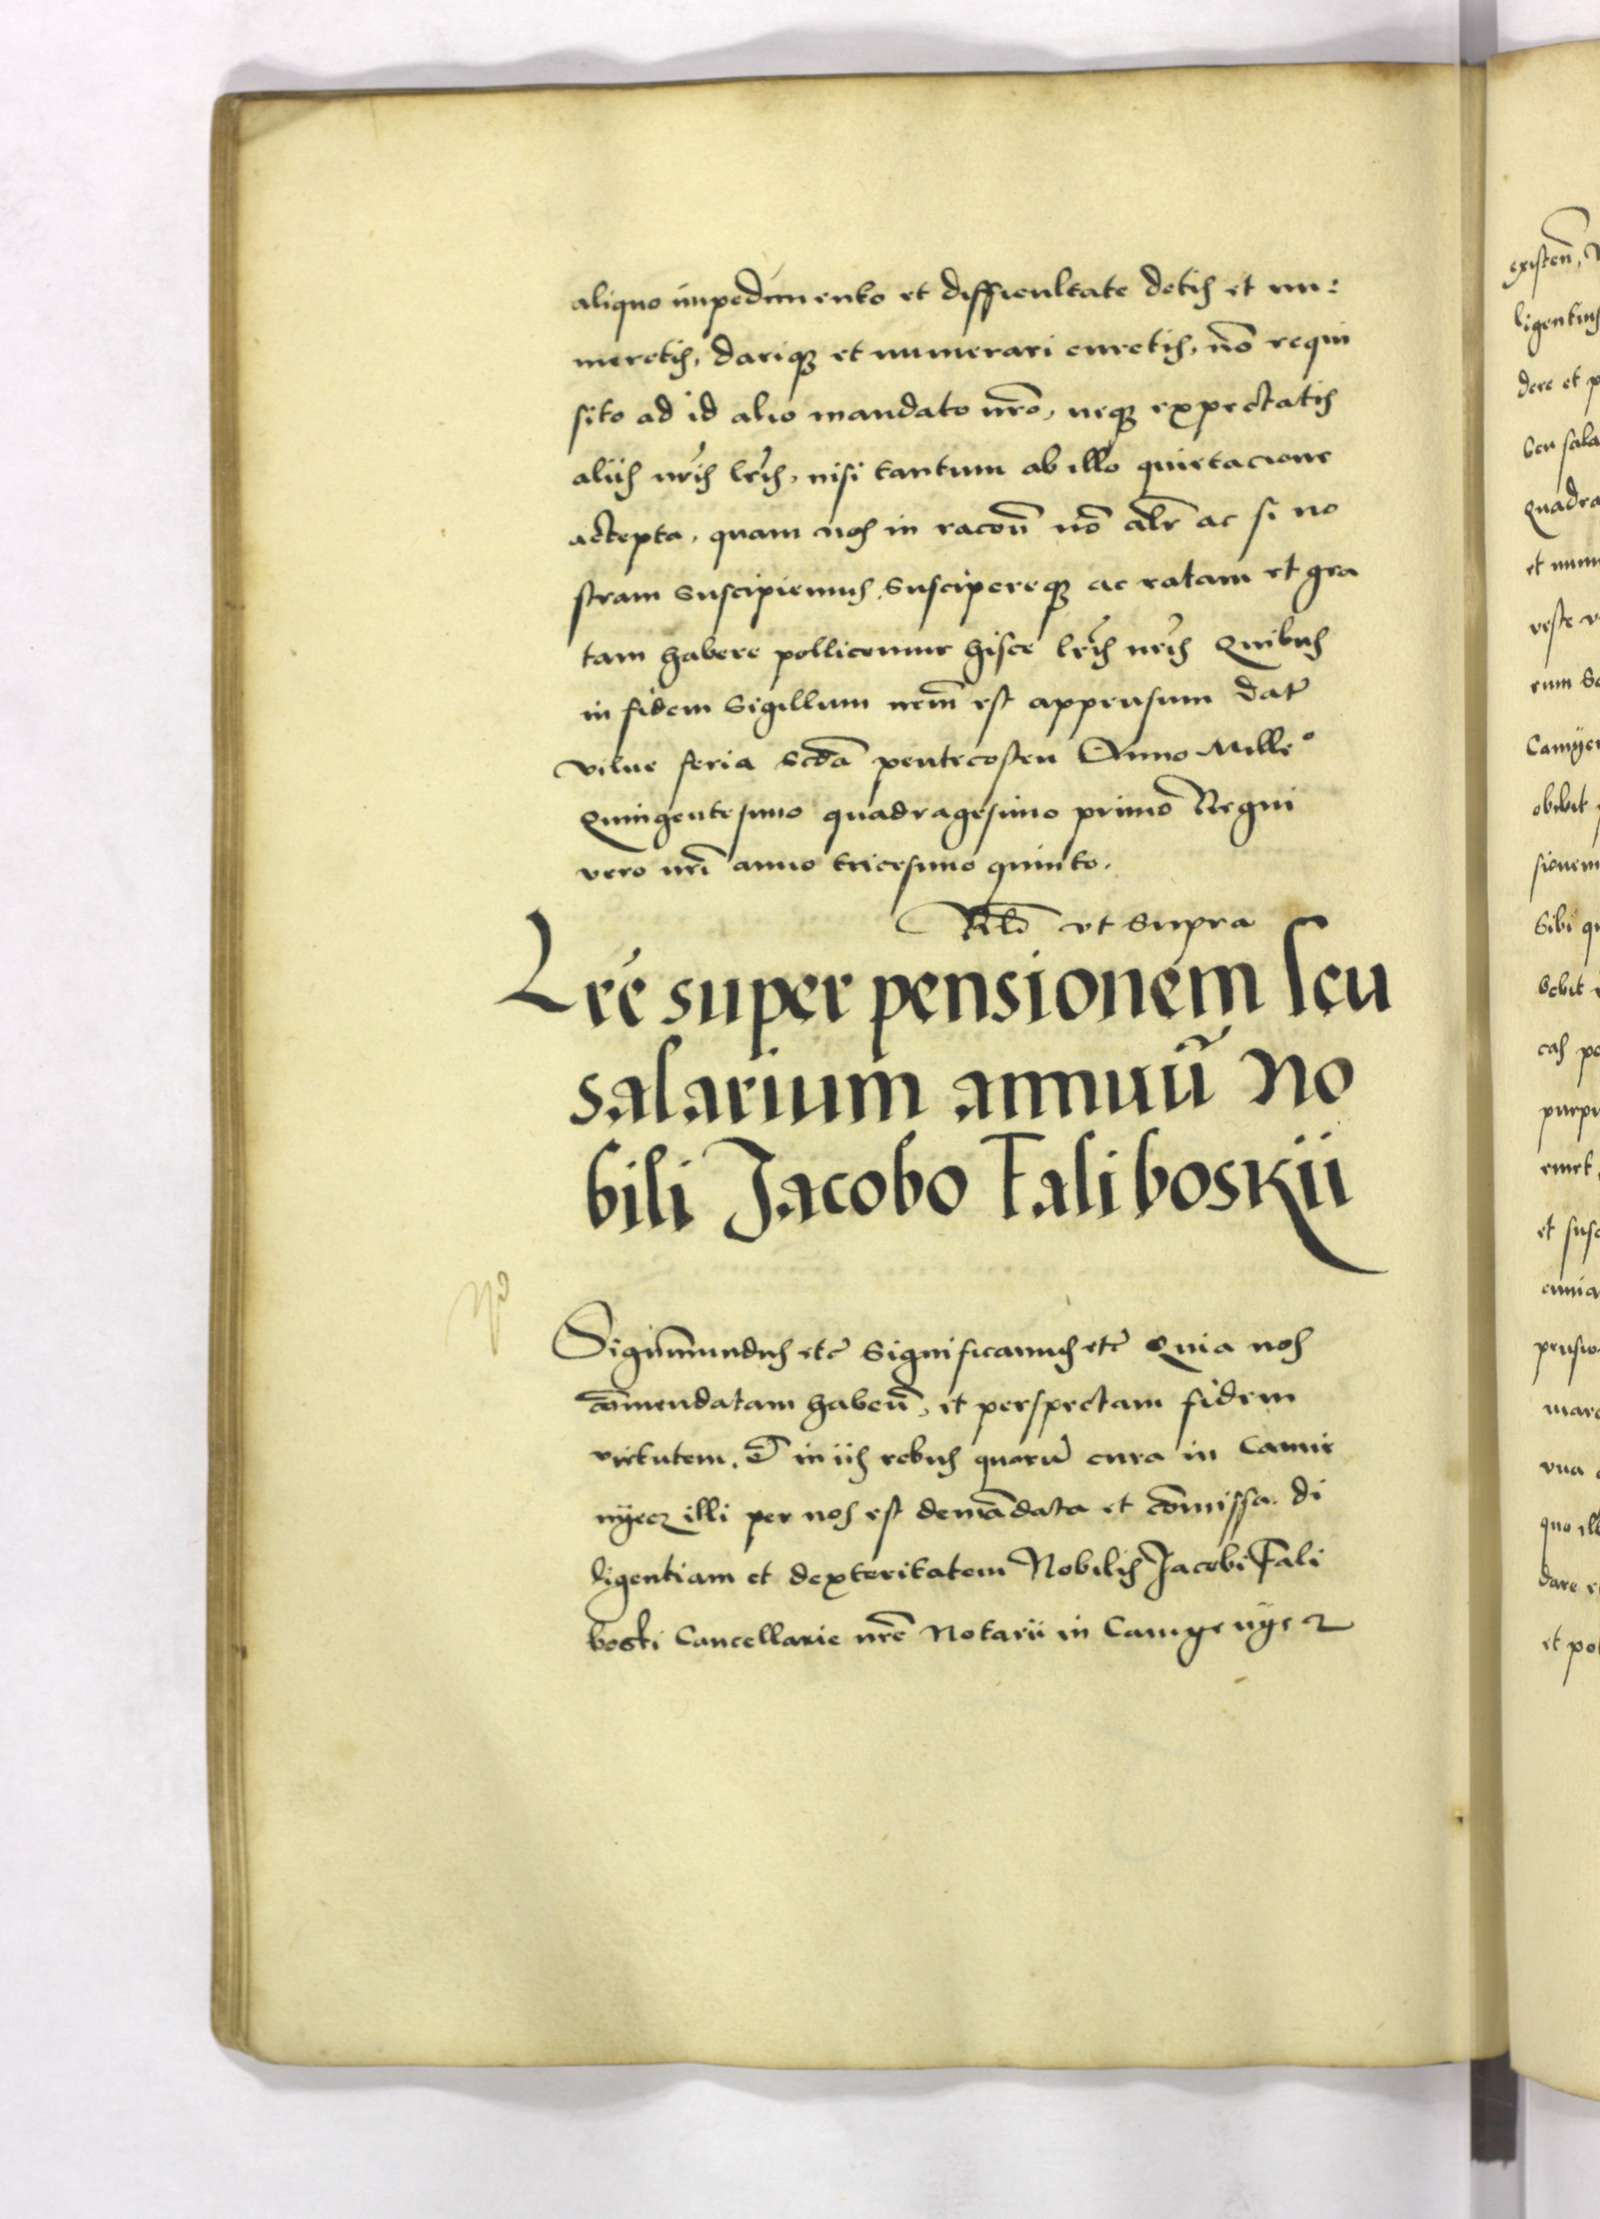 aliquo impedimento et difficultate detis et nu:
meretis, darique et numerari curetis, nõ requi
sito ad id alio mandato nr̃o, neque expectatis
aliis nr̃is lr̃is, nisi tantum ab illo quietacione
accepta, quam nos in racoñ nõ alr̃ ac si no
stram suscipiemus, suscipereque ac ratam et gra
tam habere pollicemur hisce lr̃is nr̃is Quibus
in fidem Sigillum nrm̃ est appensum Dat̃
vilne feria Scdã pentecosten Anno Mille°
Quingentesimo quadragesimo primo Regni
vero nrĩ anno tricesimo quinto.
ut supra
Lrẽ super pensionem seu
salarium annuũ No
bili Jacobo Faliboskii
Sigismundus etc̃ Significamus etc̃ Quia nos
cõmendatam habeñ, et perspectam fidem
virtutem, & in iis rebus quarũ cura in Camie
nyecz illi per nos est demãdata et cõmissa. di
ligentiam et dexteritatem Nobilis Jacobi Fali
boski Cancellarie nrẽ Notarii in Camyenyecz
existeñ,
ligentius
dere et p
seu sala
Quadra
et num
veste
rum
Camyen
obibit
sionem
Sibi qu
bebit
cas po
purpu
et susc
pensio
marc
quo ill
dare
et pot